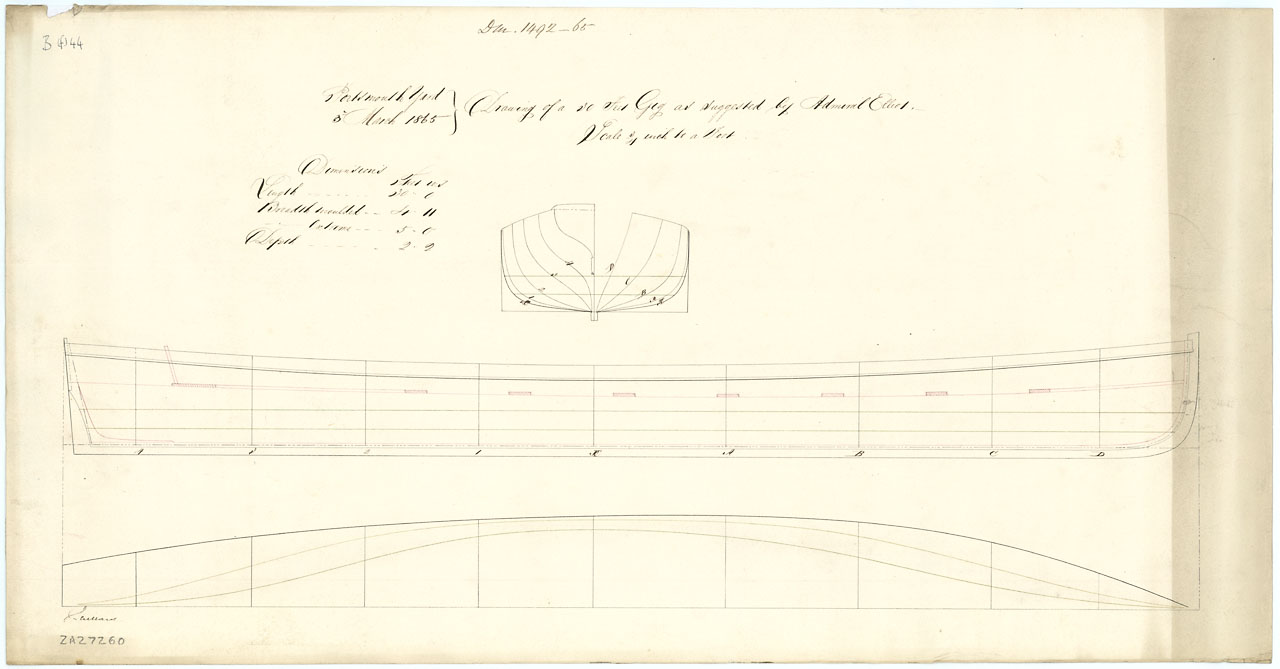 Dm. 1492_65
B (4) 44
Portsmouth Yard
March 1865
Drawing of a 30 Feet Gig as suggested by Admiral Elliot.
Scale inch to a Foot
Dimensions
Feet ins
Length 30 - 0
Breadth moulded 4 - 11
Extreme 5 - 0
Depth 2 - 9
1 A B C D
ZAZ7260